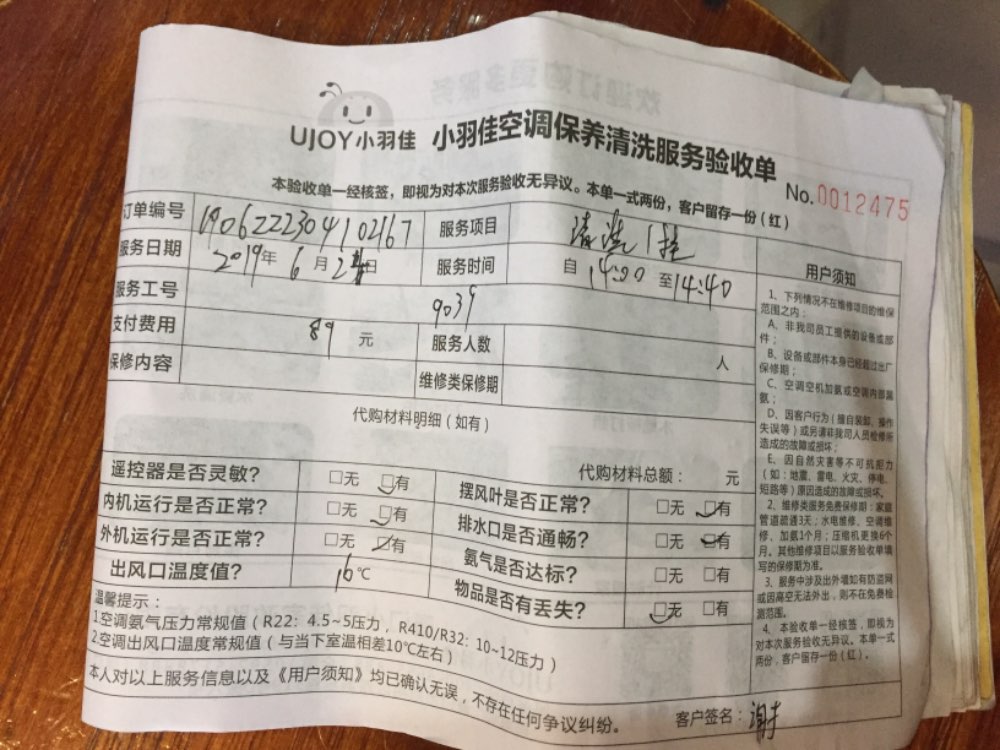 UJOY小羽佳 小羽佳空调保养清洗服务验收单
No.0012475
本验收单一经核签，即视为对本次服务验收无异议。本单一式两份，客户留存一份（红）
订单编号 服务项目 清洗1挂
服务日期 2019年 6月 日 服务时间 自 14:00 至 14:40
服务工号 9039
支付费用 89 元 服务人数 人
保修内容 维修类保修期
代购材料明细（如有）
代购材料总额： 元
遥控器是否灵敏？ □无 □有 摆风叶是否正常？ □无 □有
内机运行是否正常？ □无 □有 排水口是否通畅？ □无 □有
外机运行是否正常？ □无 □有 氨气是否达标？ □无 □有
出风口温度值？ 16℃ 物品是否有丢失？ □无 □有
温馨提示：
1空调氨气压力常规值（R22：4.5~5压力，R410/R32：10~12压力）
2空调出风口温度常规值（与当下室温相差10℃左右）
本人对以上服务信息以及《用户须知》均已确认无误，不存在任何争议纠纷。
客户签名：谢
用户须知
1、下列情况不在维修项目的维保
范围之内：
A、非我司员工提供的设备或部
件；
B、设备或部件本身已经超过出厂
保修期；
C、空调空机加氨或空调内部漏
氨；
D、因客户行为（擅自装卸、操作
失误等）或另请非我司人员检修所
造成的故障或损坏；
E、因自然灾害等不可抗拒力
（如：地震、雷电、火灾、停电、
短路等）原因造成的故障或损坏。
2、维修类服务免费保修期：家庭
管道疏通3天；水电维修、空调维
修、加氨1个月；压缩机更换6个
月。其他维修项目以服务验收单填
写的保修期为准。
3、服务中涉及出外墙如有防盗网
或因高空无法外出，则不在免费检
测范围。
4、本验收单一经核签，即视为
对本次服务验收无异议。本单一式
两份，客户留存一份（红）。